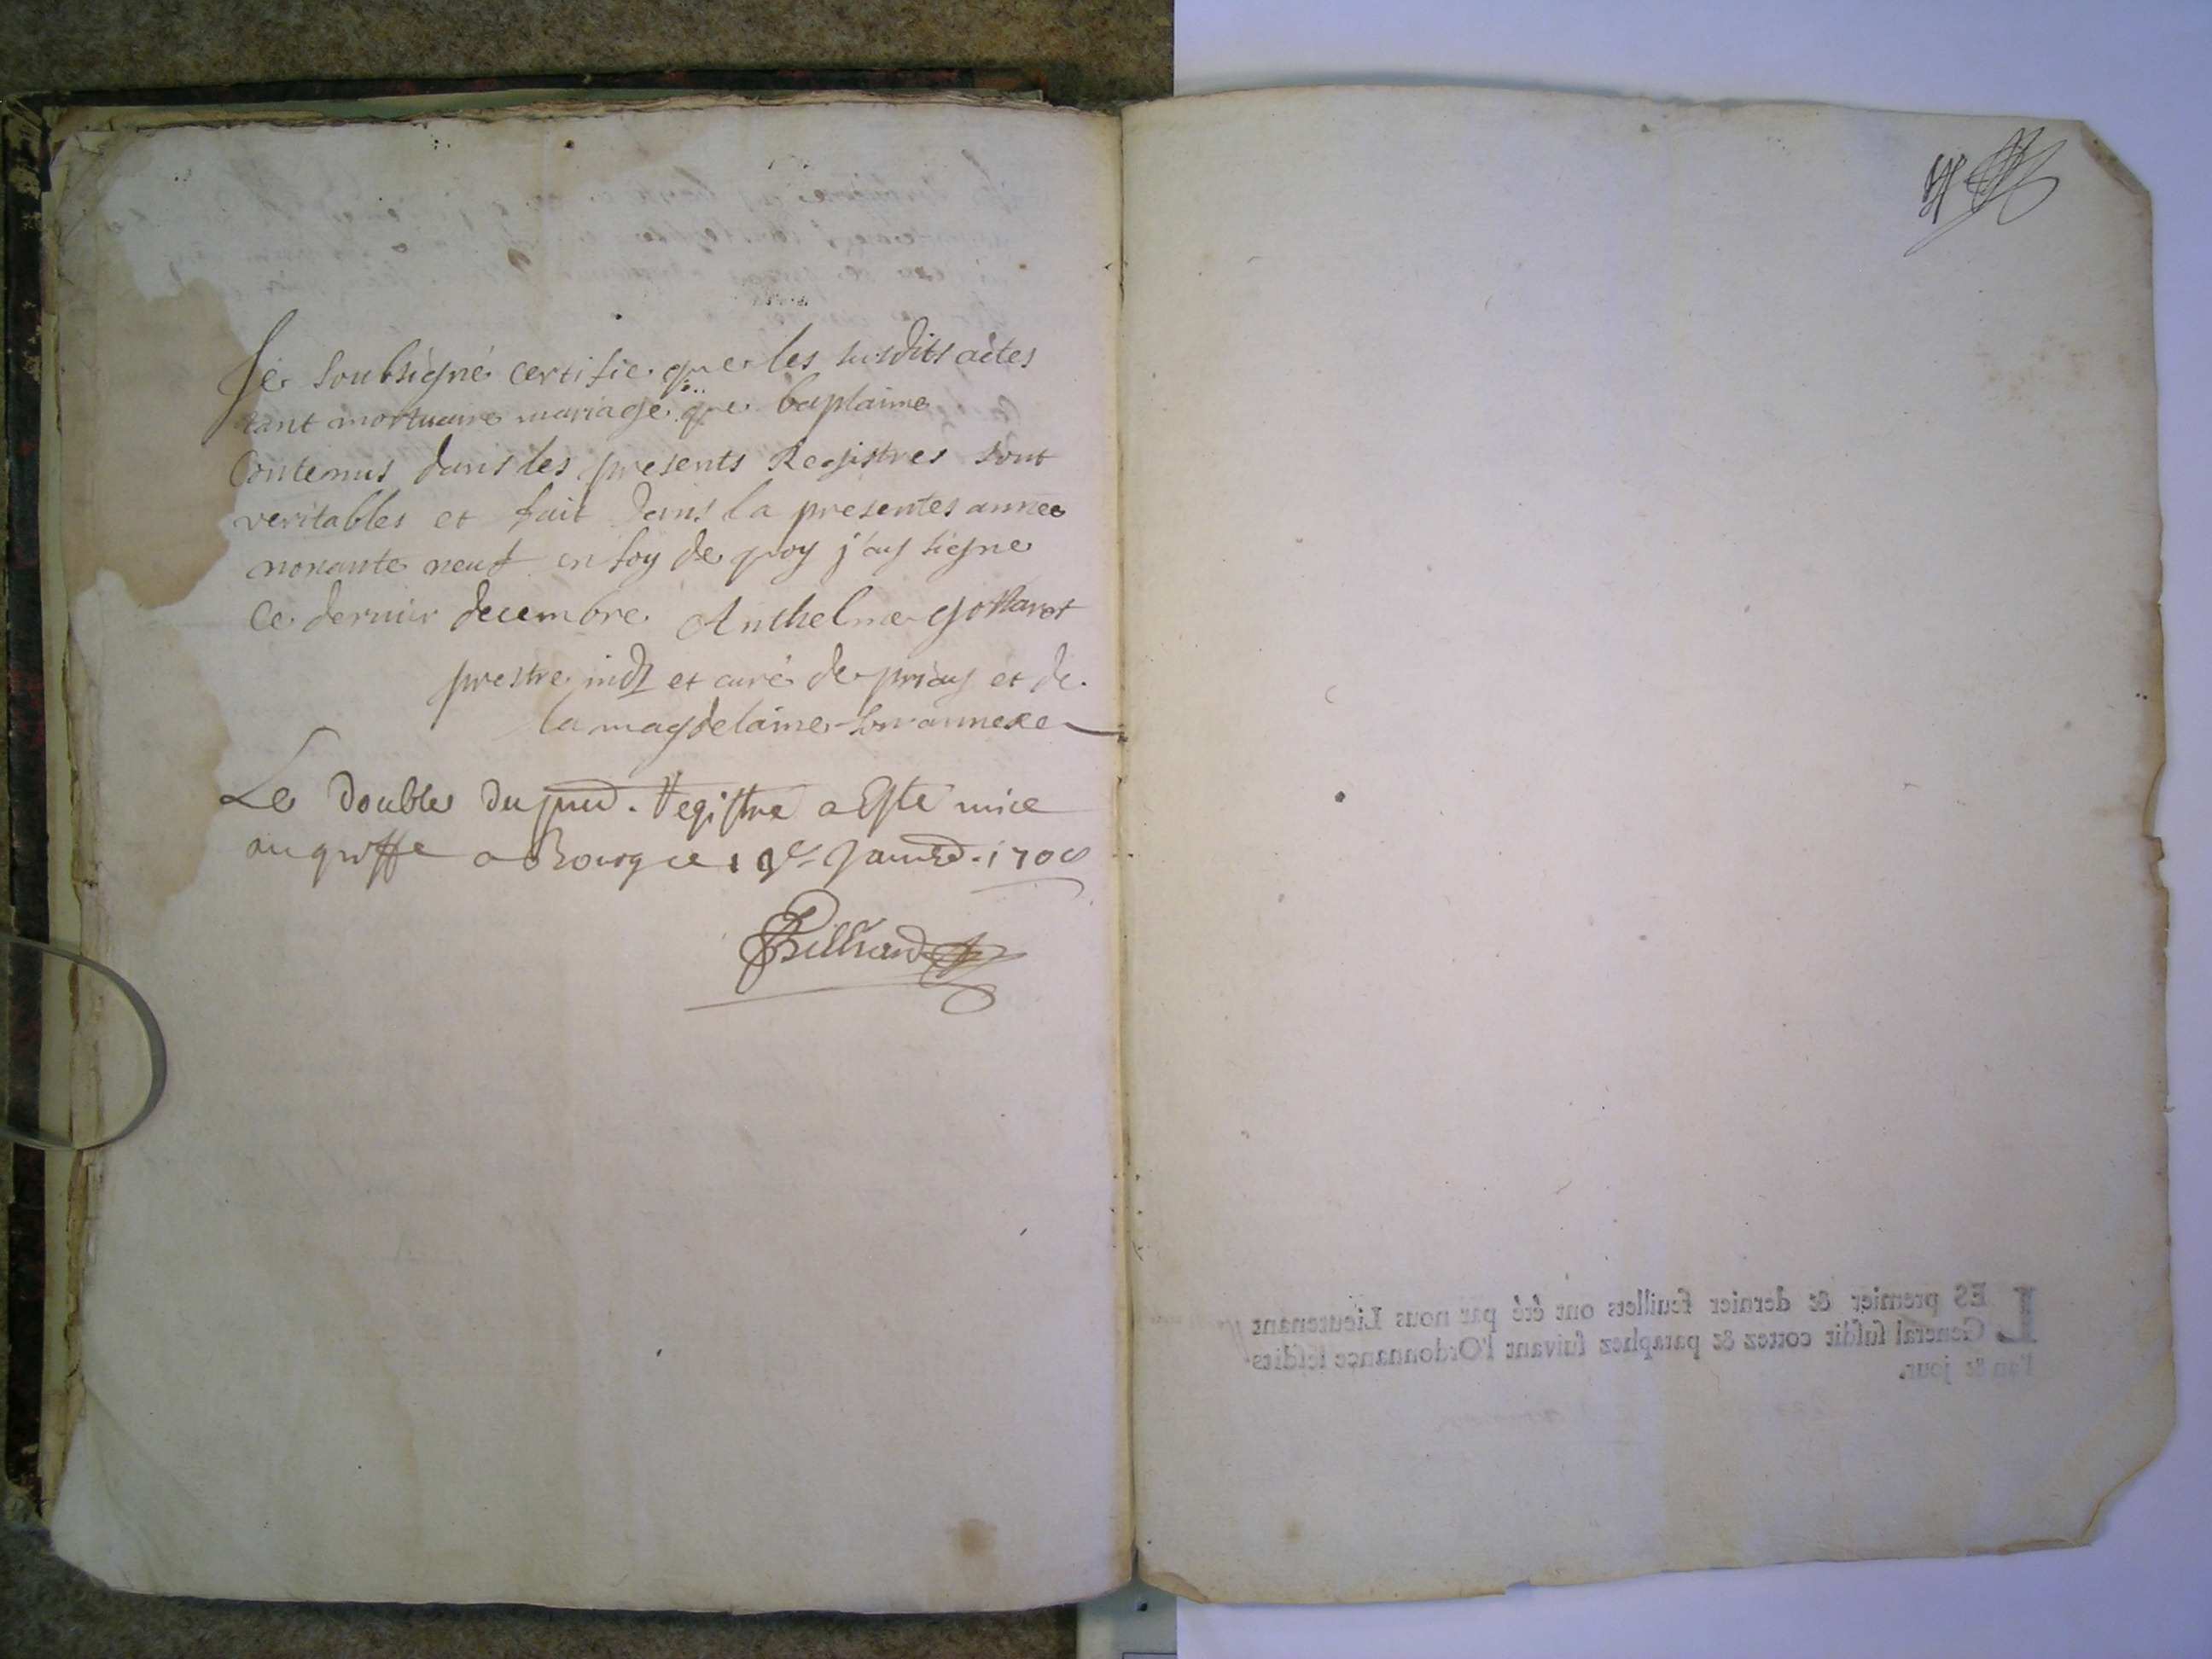 Je soubsigné certifie que les susdits actes
tant mortuaire mariage que baptaime
Contenus dans les presents Registres sont
veritables et fait dans la presentes annee
nonante neuf en foy de quoy j'ay signe
Ce dernier decembre Anthelme
prestre ind et curé de priay et de
la magdelaine son annexe
Le double du pnd. Registre a Esté mice
au greffe a Bourg ce
LES premier & dernier feuillets ont été par nous Lieutenant
General susdit cottez & paraphez suivant l'Ordonnance lesdits
l'an & jour.